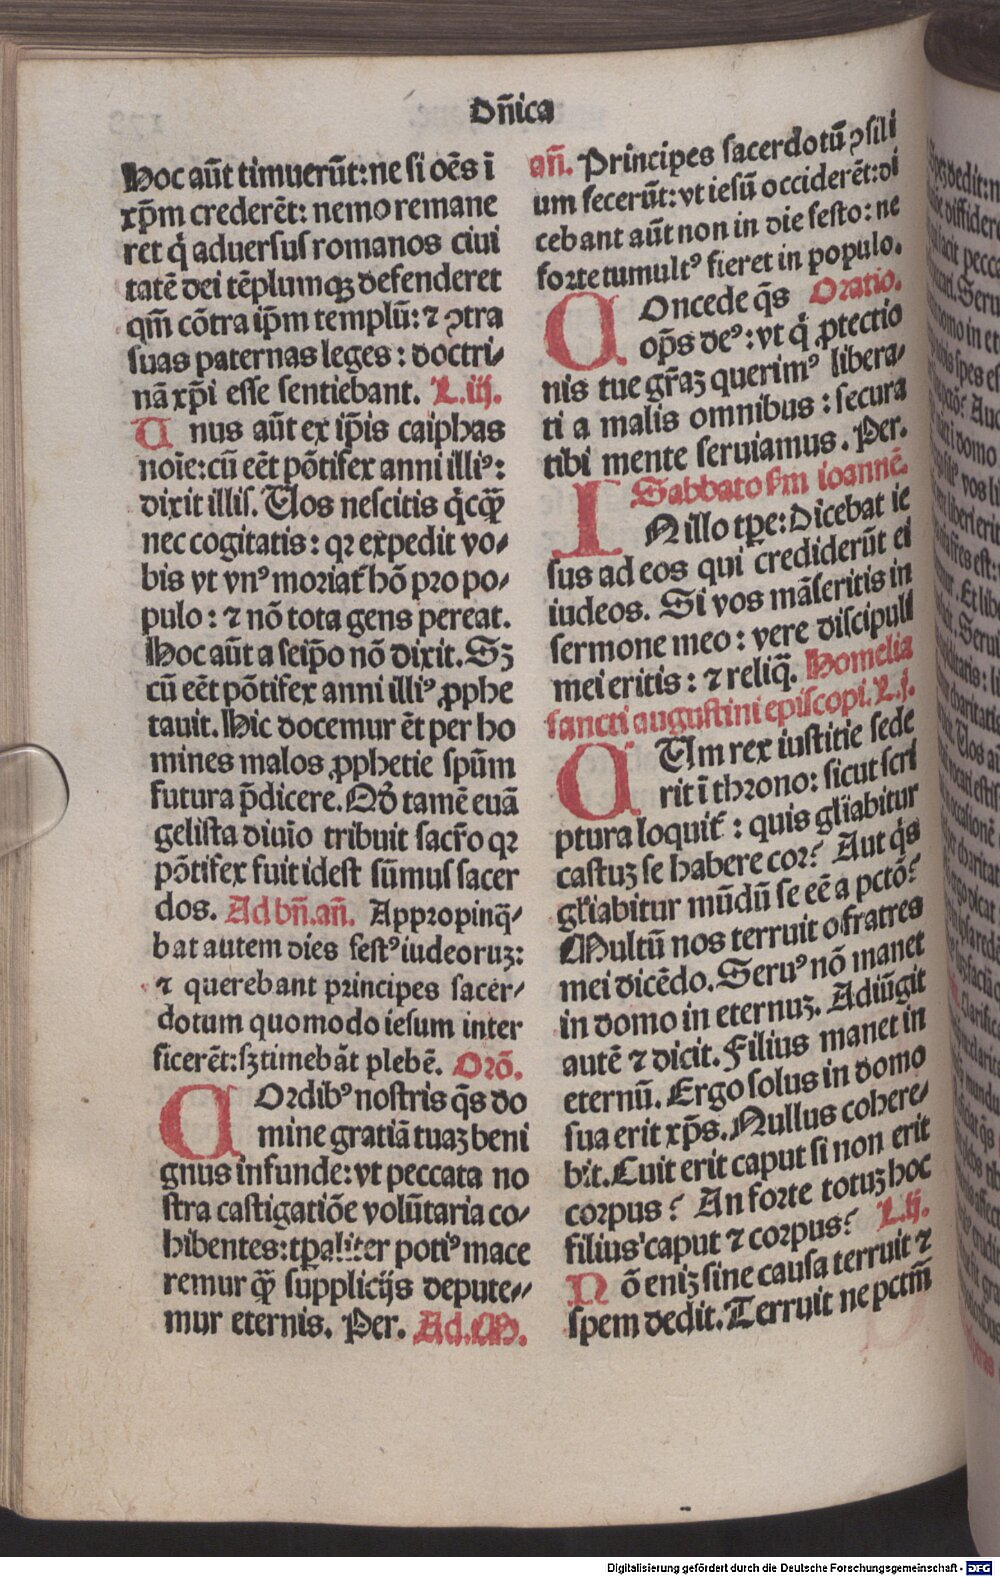 Dn̄ica
Hoc aūt timuerūt: ne si oēs ī
xp̄m crederēt: nemo remane
ret q̇ aduersus romanos ciui
tatē dei tēplumqꝫ defenderet
qm̄ cōtra ip̄m templū: ⁊ ꝯtra
suas paternas leges: doctri⸗
nā xp̄i esse sentiebant. L.iij.
Unus aūt ex ip̄is caiphas
noīe: cū eēt pōtifex anni illiꝰ:
dixit illis. Uos nescitis q̇cq̄ꝫ
nec cogitatis: qꝛ expedit vo⸗
bis vt vnꝰ moriat᷑ hō pro po⸗
pulo: ⁊ nō tota gens pereat.
Hoc aūt a seip̄o nō dixit. Sꝫ
cū eēt pōtifex anni illiꝰ ꝓphe
tauit. Hic docemur ēt per ho
mines malos ꝓphetie spūm
futura p̄dicere. Qď tamē euā
gelista diuīo tribuit sacr̄o qꝛ
pōtifex fuit idest sūmus sacer
dos. Ad bn̄.an̄. Appropinq̄⸗
bat autem dies festꝰ iudeoruꝫ:
⁊ querebant principes sacer⸗
dotum quomodo iesum inter
ficerēt: sꝫ timebāt plebē. Orō.
COrdibꝰ nostris q̄s do
mine gratiā tuaꝫ beni
gnus infunde: vt peccata no
stra castigatiōe volūtaria co⸗
hibentes: tp̄aliter potiꝰ mace
remur q̄ꝫ supplicijs depute⸗
mur eternis. Per. Ad.M.
an̄. Principes sacerdotū ꝯsili
um fecerūt: vt iesū occiderēt: di
cebant aūt non in die festo: ne
forte tumultꝰ fieret in populo.
COncede q̄s Oratio.
op̄s deꝰ: vt q̇ ꝓtectio
nis tue gr̄aꝫ querimꝰ libera⸗
ti a malis omnibus: secura
tibi mente seruiamus. Per.
Sabbato ẜm ioannē.
IN illo tp̄e: Dicebat ie
sus ad eos qui crediderūt ei
iudeos. Si vos māseritis in
sermone meo: vere discipuli
mei eritis: ⁊ reliq̄. Homelia
sancti augustini episcopi. L.j.
CUm rex iustitie sede
rit ī throno: sicut scri
ptura loquit᷑: quis gľiabitur
castuꝫ se habere cor? Aut q̇s
gľiabitur mūdū se eē a pctō?
Multū nos terruit o fratres
mei dicēdo. Seruꝰ nō manet
in domo in eternuꝫ. Adiūgit
autē ⁊ dicit. Filius manet in
eternū. Ergo solus in domo
sua erit xp̄s. Nullus cohere⸗
bit. Cuit erit caput si non erit
corpus? An forte totuꝫ hoc
filius caput ⁊ corpus? L.ij.
Nō eniꝫ sine causa terruit ⁊
spem dedit. Terruit ne pctm̄
Digitalisierung gefördert durch die Deutsche Forschungsgemeinschaft - DFG